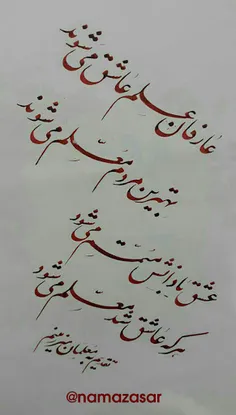 عارفان علم عاشق می شوند
بهترین مردم معلم می شوند
عشق با دانش متمم می شود
هر که عاشق شد معلم می شود
تقدیم به معلمان سرزمینم
@namazasar